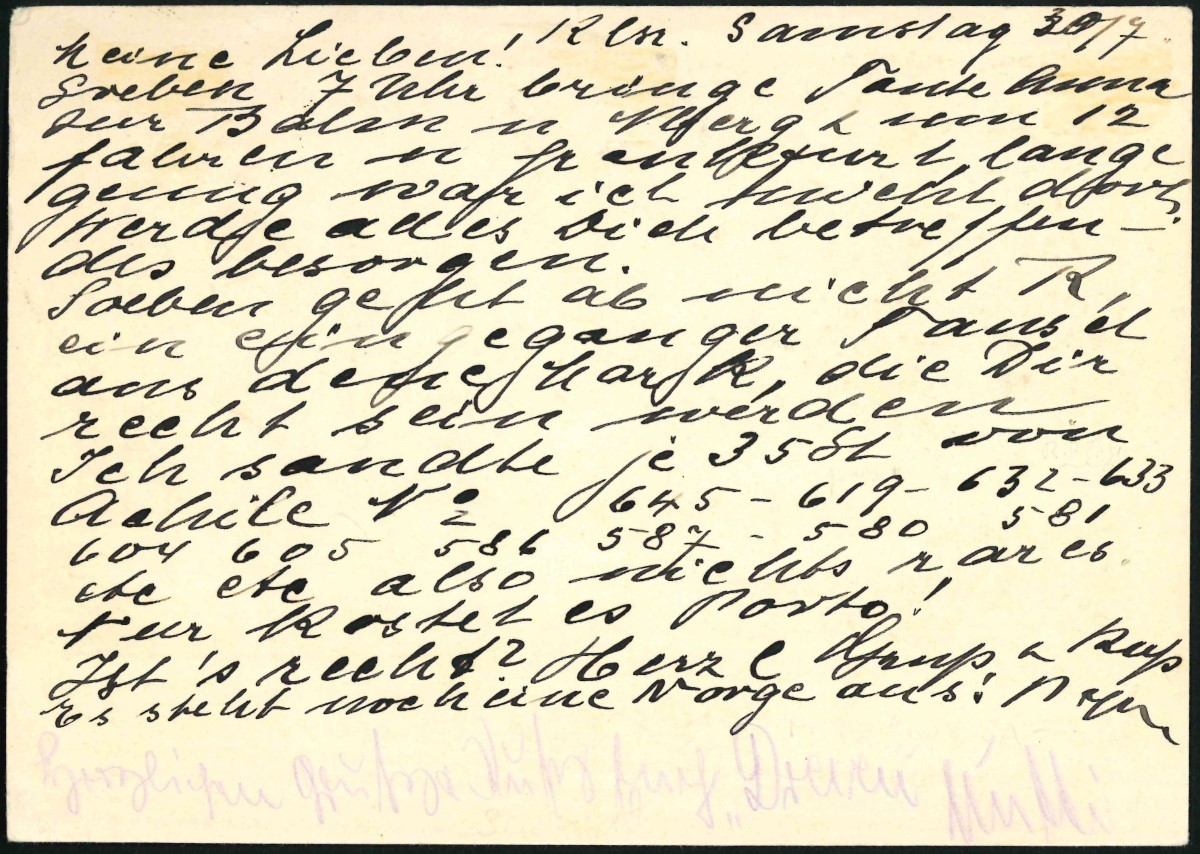 Klsr. Samstag 30/7.
Meine Lieben!
Soeben 7 Uhr bringe Tante Anna
zur Bahn n Nberg & um 12
fahren n Frankfurt, lange
genug war ich nicht dort.
Werde alles Dich betreffen-
des besorgen.
Soeben geht ab nicht R,
ein eingeganger Tausch
aus, die Dir
recht sein werden
Ich sandte je 35 St von
Achile No 645 - 619 - 632 - 633
604 605 586 587 - 580 581
etc etc also nichts rares.
Nur kostet es Porto!
Ist's recht? Herzl Gruß & Kuß
Es steht noch eine Vorge aus! Papa
Herzlichen Grüße Kuß Mutti